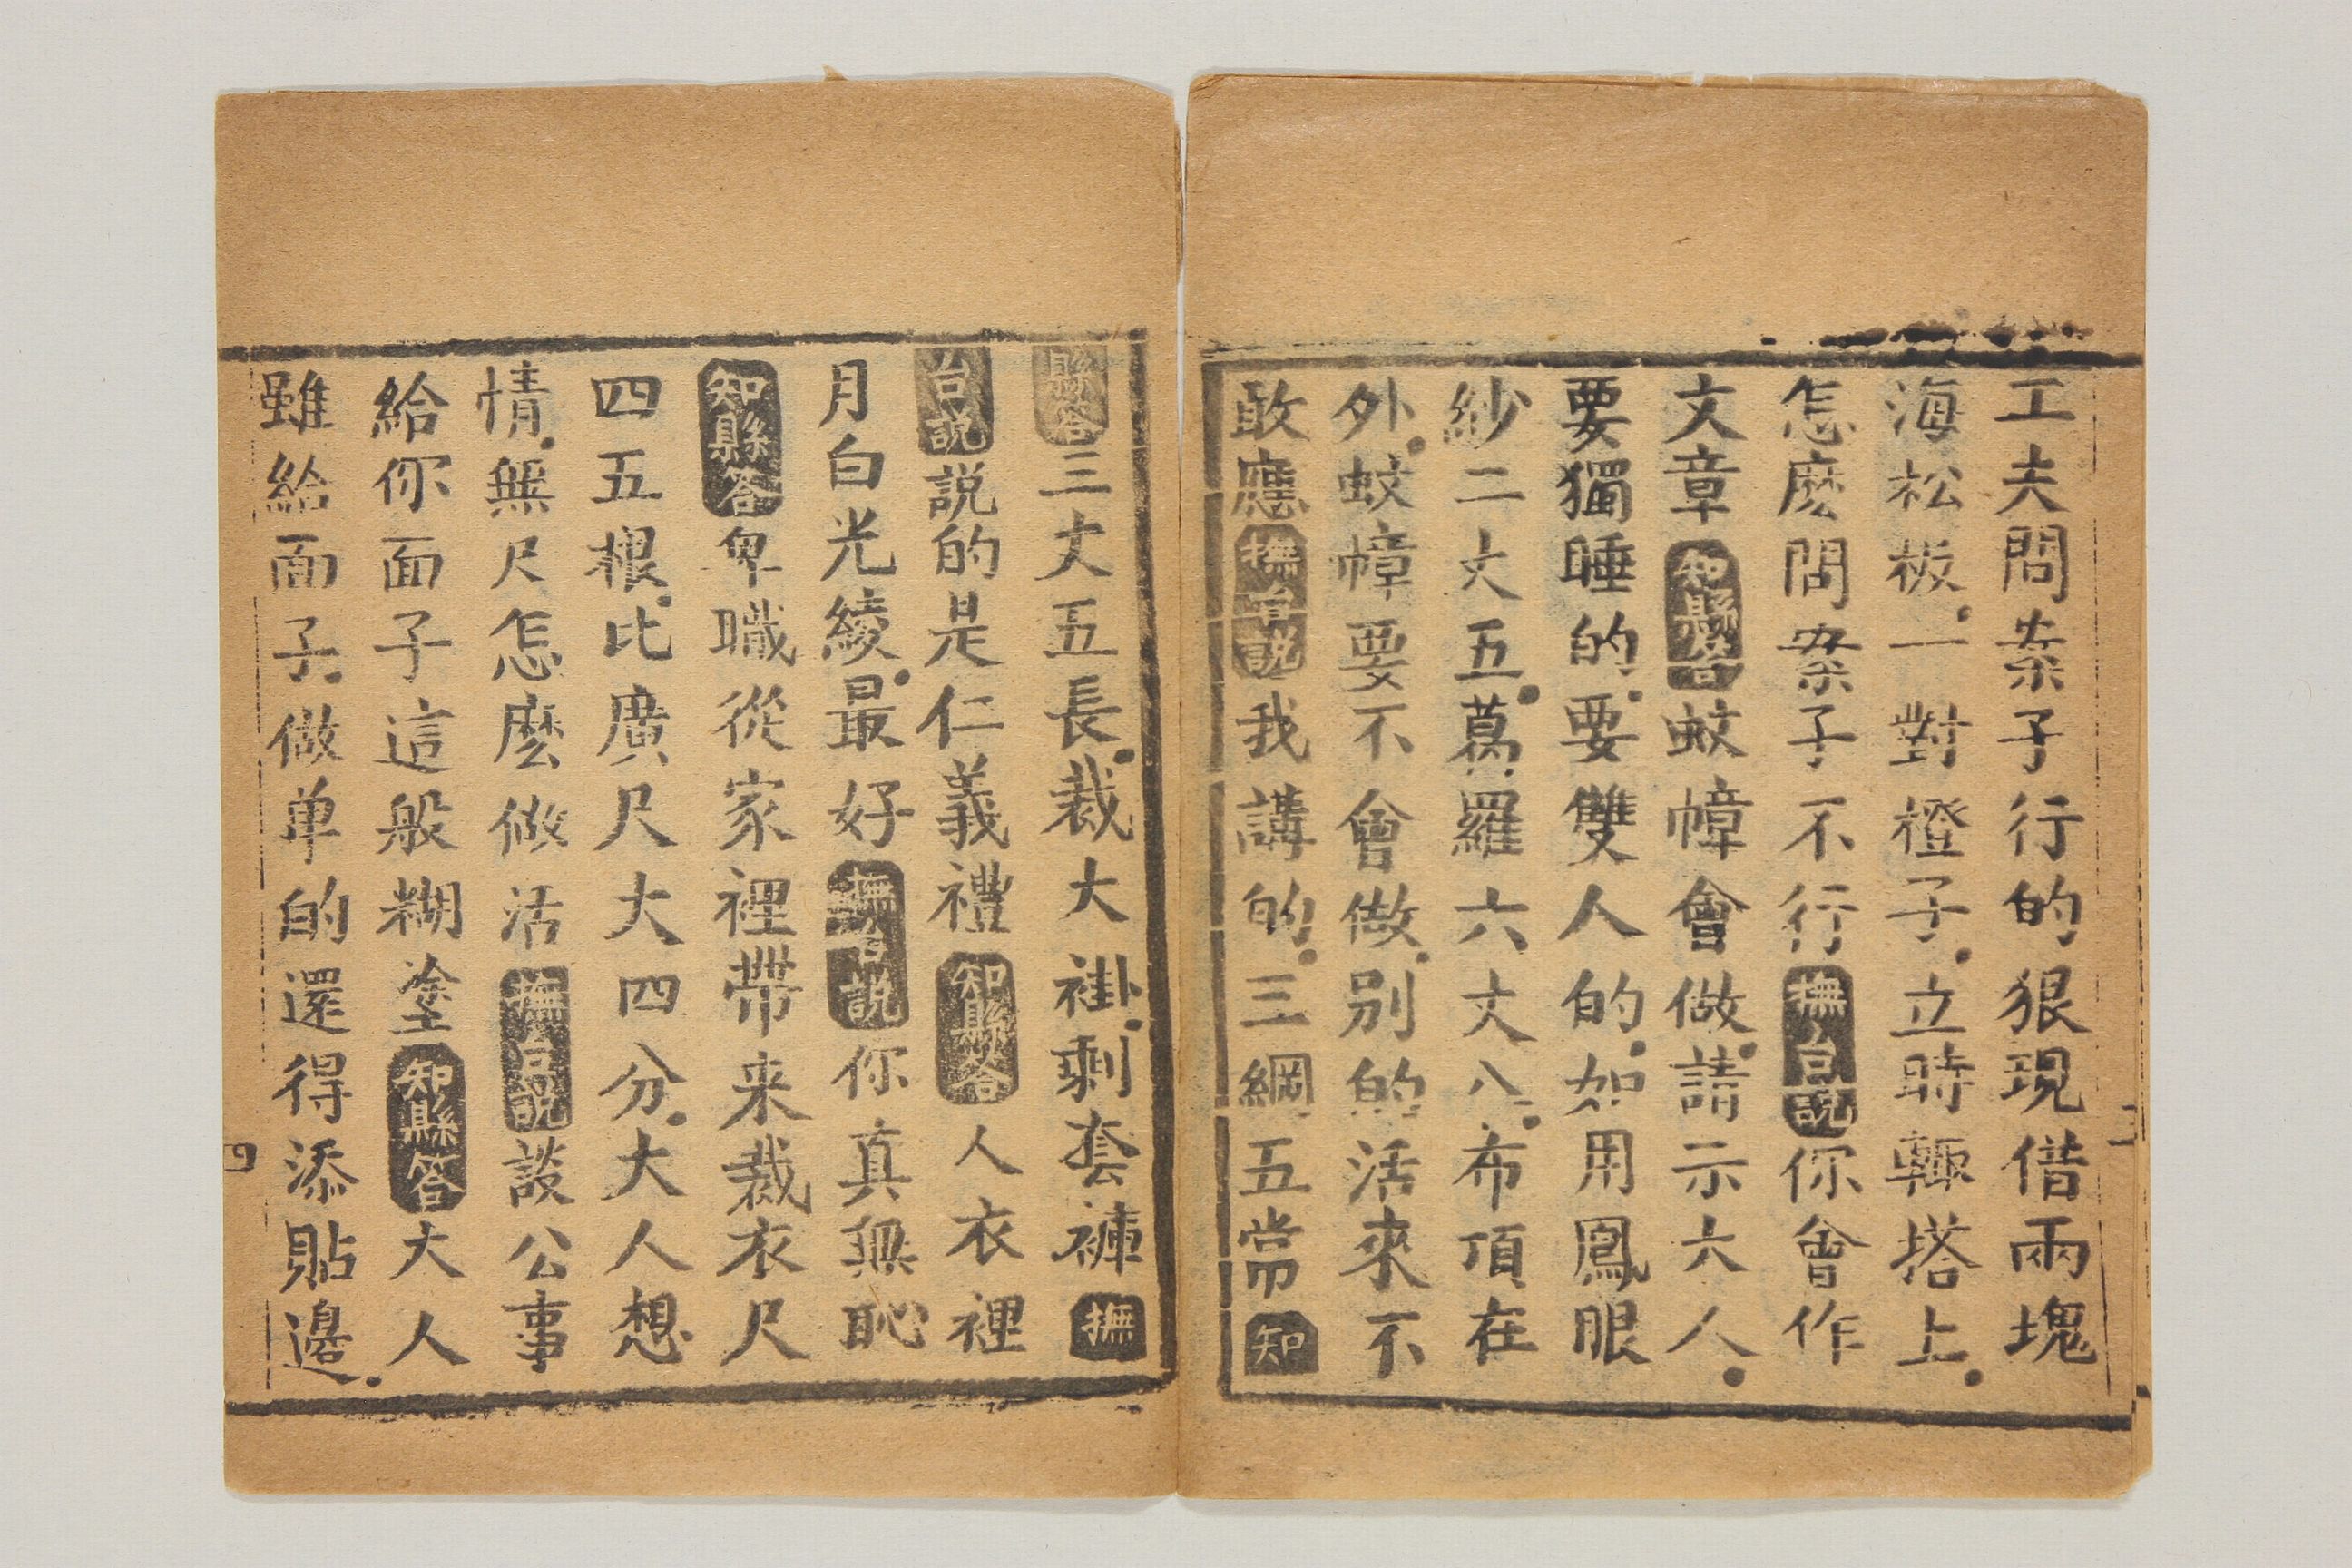 工夫問案子行的狠現借兩塊
海松板一對橙子立時輙塔上
怎麼問案子不行撫台說你會作
文章知縣答蚊幛會做請示六人
要獨睡的要雙人的如用鳳眼
紗二丈五葛羅六丈八布頂在
外蚊幛要不會做别的活來不
敢應撫台說我講的三綱五當知
縣答三丈五長裁大褂剩套褲撫
台說說的是仁義禮知縣答人衣裡
月白光綾最好撫台說你真無恥
知縣答卑職從家裡帶来裁衣尺
四五根比廣尺大四分大人想
情無尺怎麼做活撫台說談公事
給你面子這般糊塗知縣答大人
雖給面子做单的還得添貼邊
四